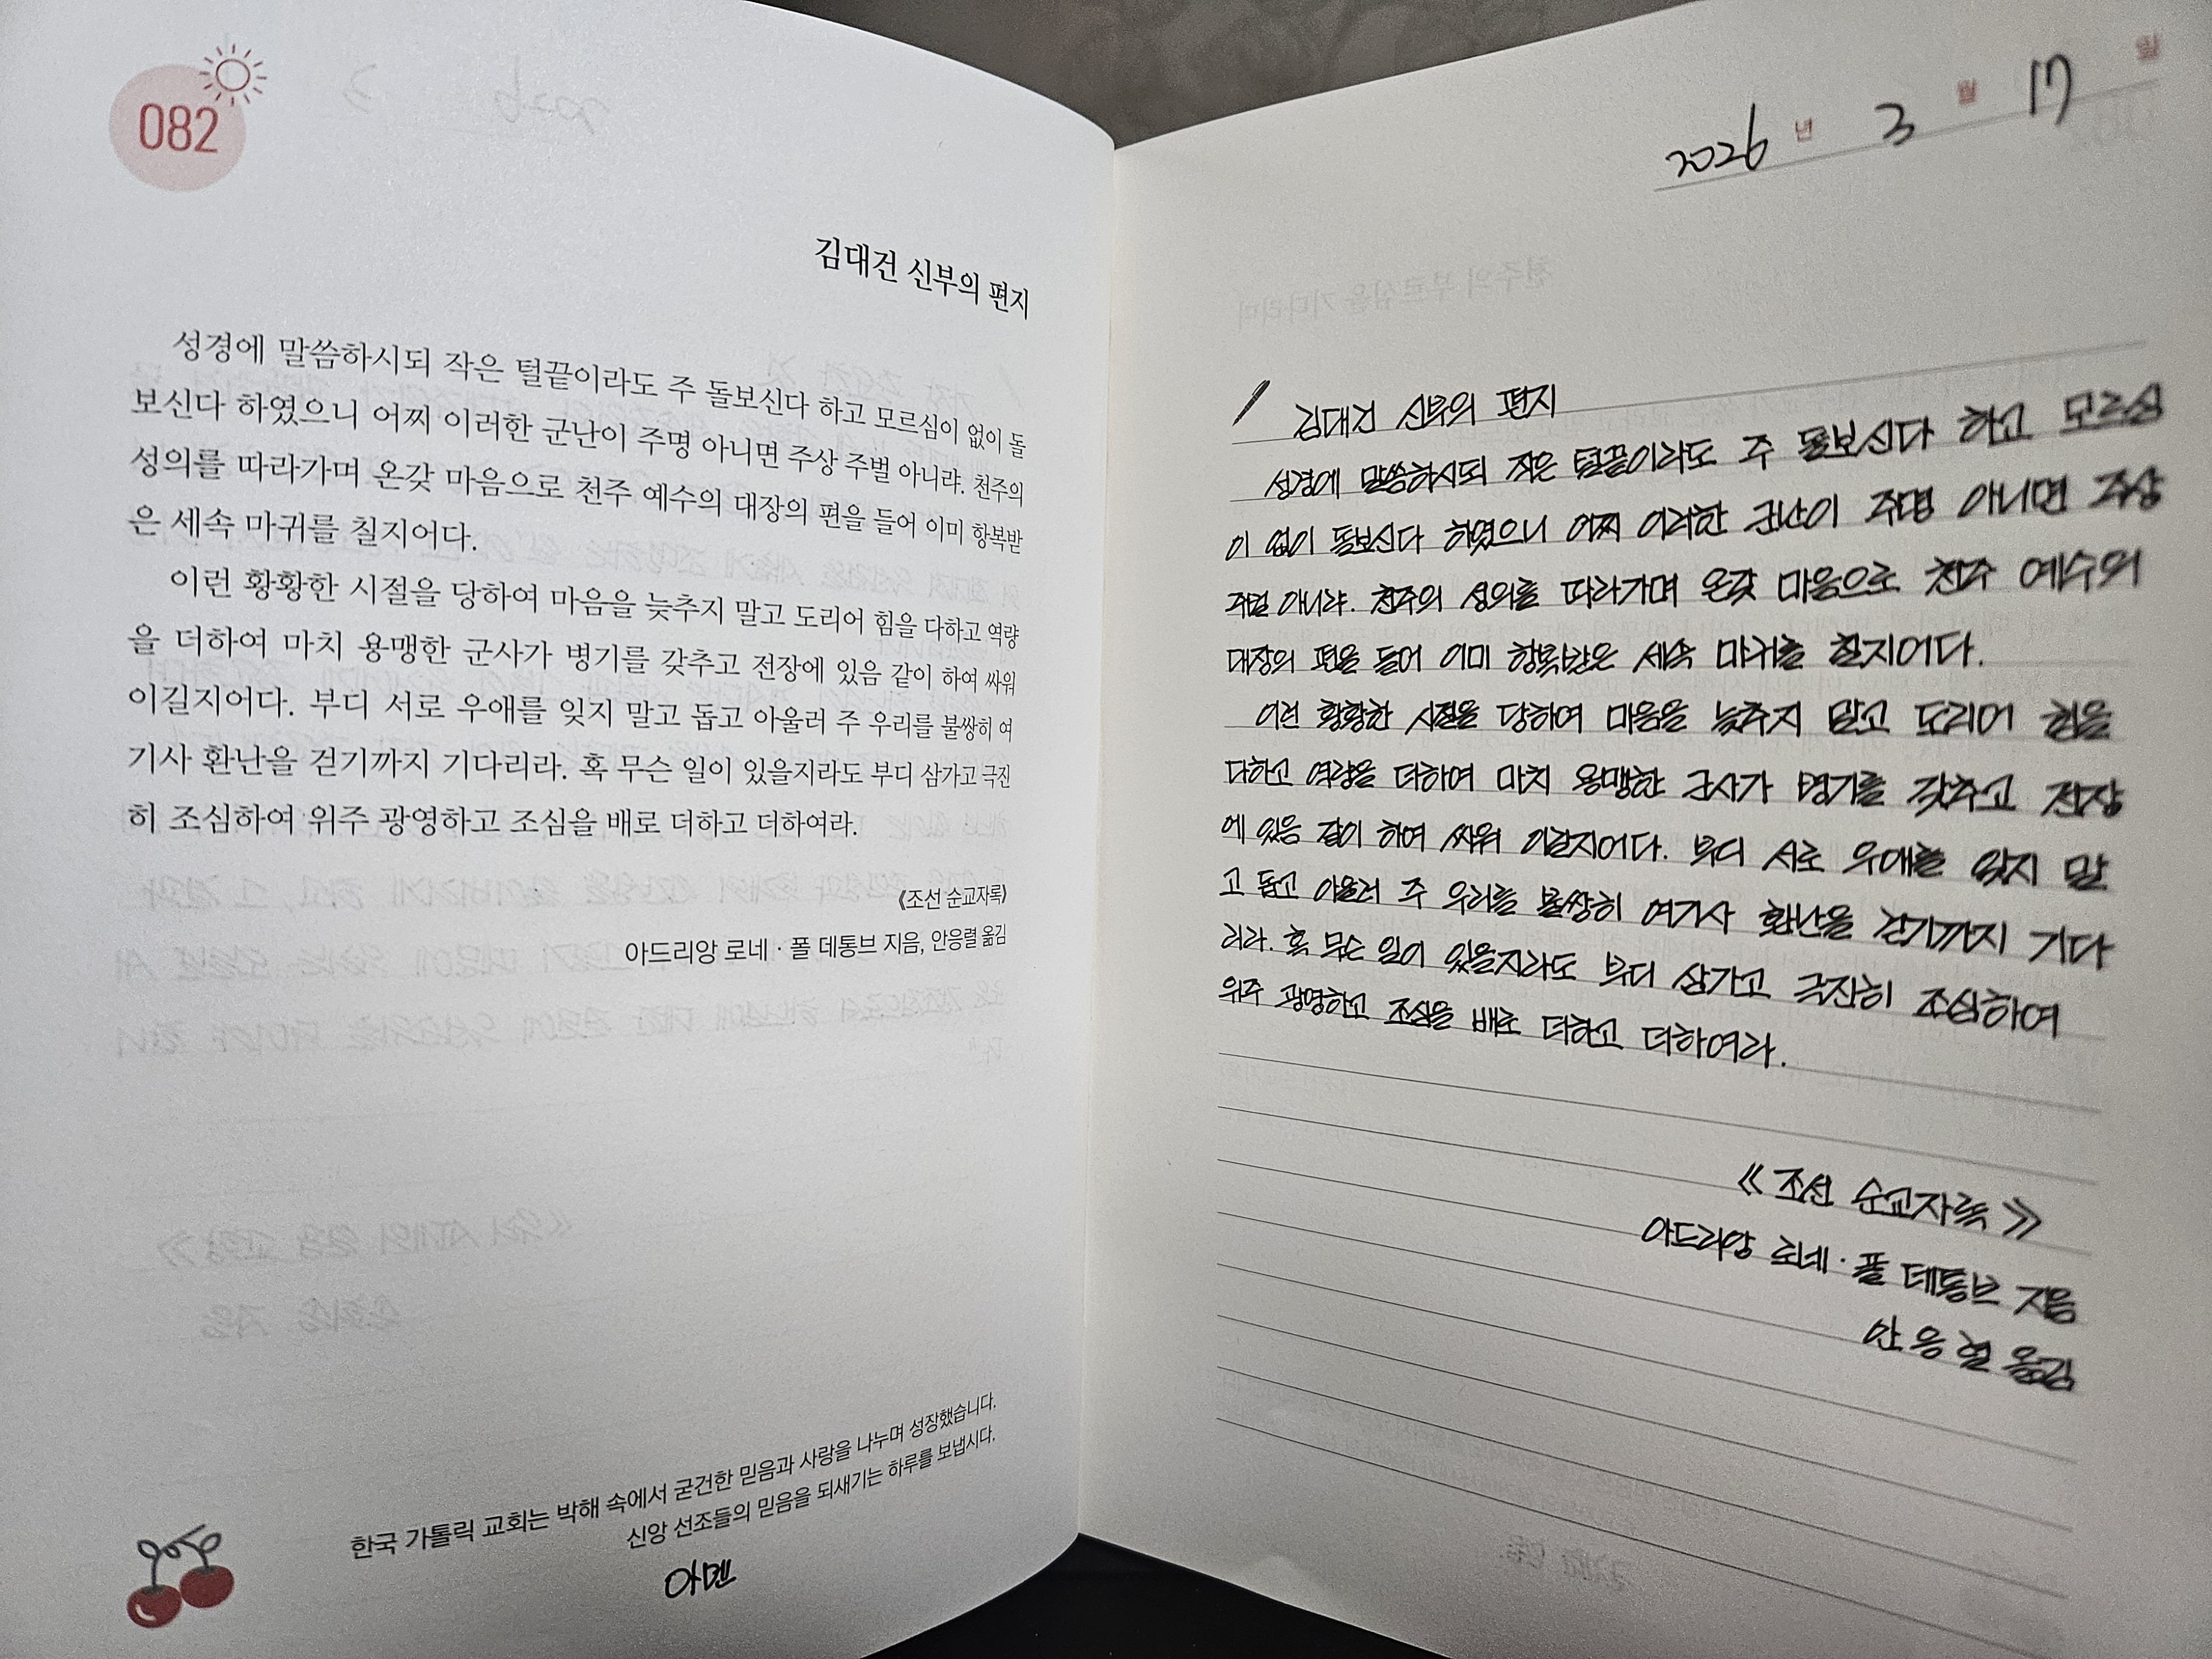 082
김대건 신부의 편지
성경에 말씀하시되 작은 털끝이라도 주 돌보신다 하고 모르심이 없이 돌
보신다 하였으니 어찌 이러한 군난이 주명 아니면 주상 주벌 아니랴. 천주의
성의를 따라가며 온갖 마음으로 천주 예수의 대장의 편을 들어 이미 항복받
은 세속 마귀를 칠지어다.
이런 황황한 시절을 당하여 마음을 늦추지 말고 도리어 힘을 다하고 역량
을 더하여 마치 용맹한 군사가 병기를 갖추고 전장에 있음 같이 하여 싸워
이길지어다. 부디 서로 우애를 잊지 말고 돕고 아울러 주 우리를 불쌍히 여
기사 환난을 걷기까지 기다리라. 혹 무슨 일이 있을지라도 부디 삼가고 극진
히 조심하여 위주 광영하고 조심을 배로 더하고 더하여라.
《조선 순교자록》
아드리앙 로네 · 폴 데통브 지음, 안응렬 옮김
한국 가톨릭 교회는 박해 속에서 굳건한 믿음과 사랑을 나누며 성장했습니다.
신앙 선조들의 믿음을 되새기는 하루를 보냅시다.
아멘
2026 년 3 월 17 일
김대건 신부의 편지
성경에 말씀하시되 작은 털끝이라도 주 돌보신다 하고 모르심
이 없이 돌보신다 하였으니 어찌 이러한 군난이 주명 아니면 주상
주벌 아니랴. 천주의 성의를 따라가며 온갖 마음으로 천주 예수의
대장의 편을 들어 이미 항복받은 세속 마귀를 칠지어다.
이런 황황한 시절을 당하여 마음을 늦추지 말고 도리어 힘을
다하고 역량을 더하여 마치 용맹한 군사가 병기를 갖추고 전장
에 있음 같이 하여 싸워 이길지어다. 부디 서로 우애를 잊지 말
고 돕고 아울러 주 우리를 불쌍히 여기사 환난을 걷기까지 기다
리라. 혹 무슨 일이 있을지라도 부디 삼가고 극진히 조심하여
위주 광영하고 조심을 배로 더하고 더하여라.
《조선 순교자록》
아드리앙 로네 · 폴 데통브 지음
안응렬 옮김